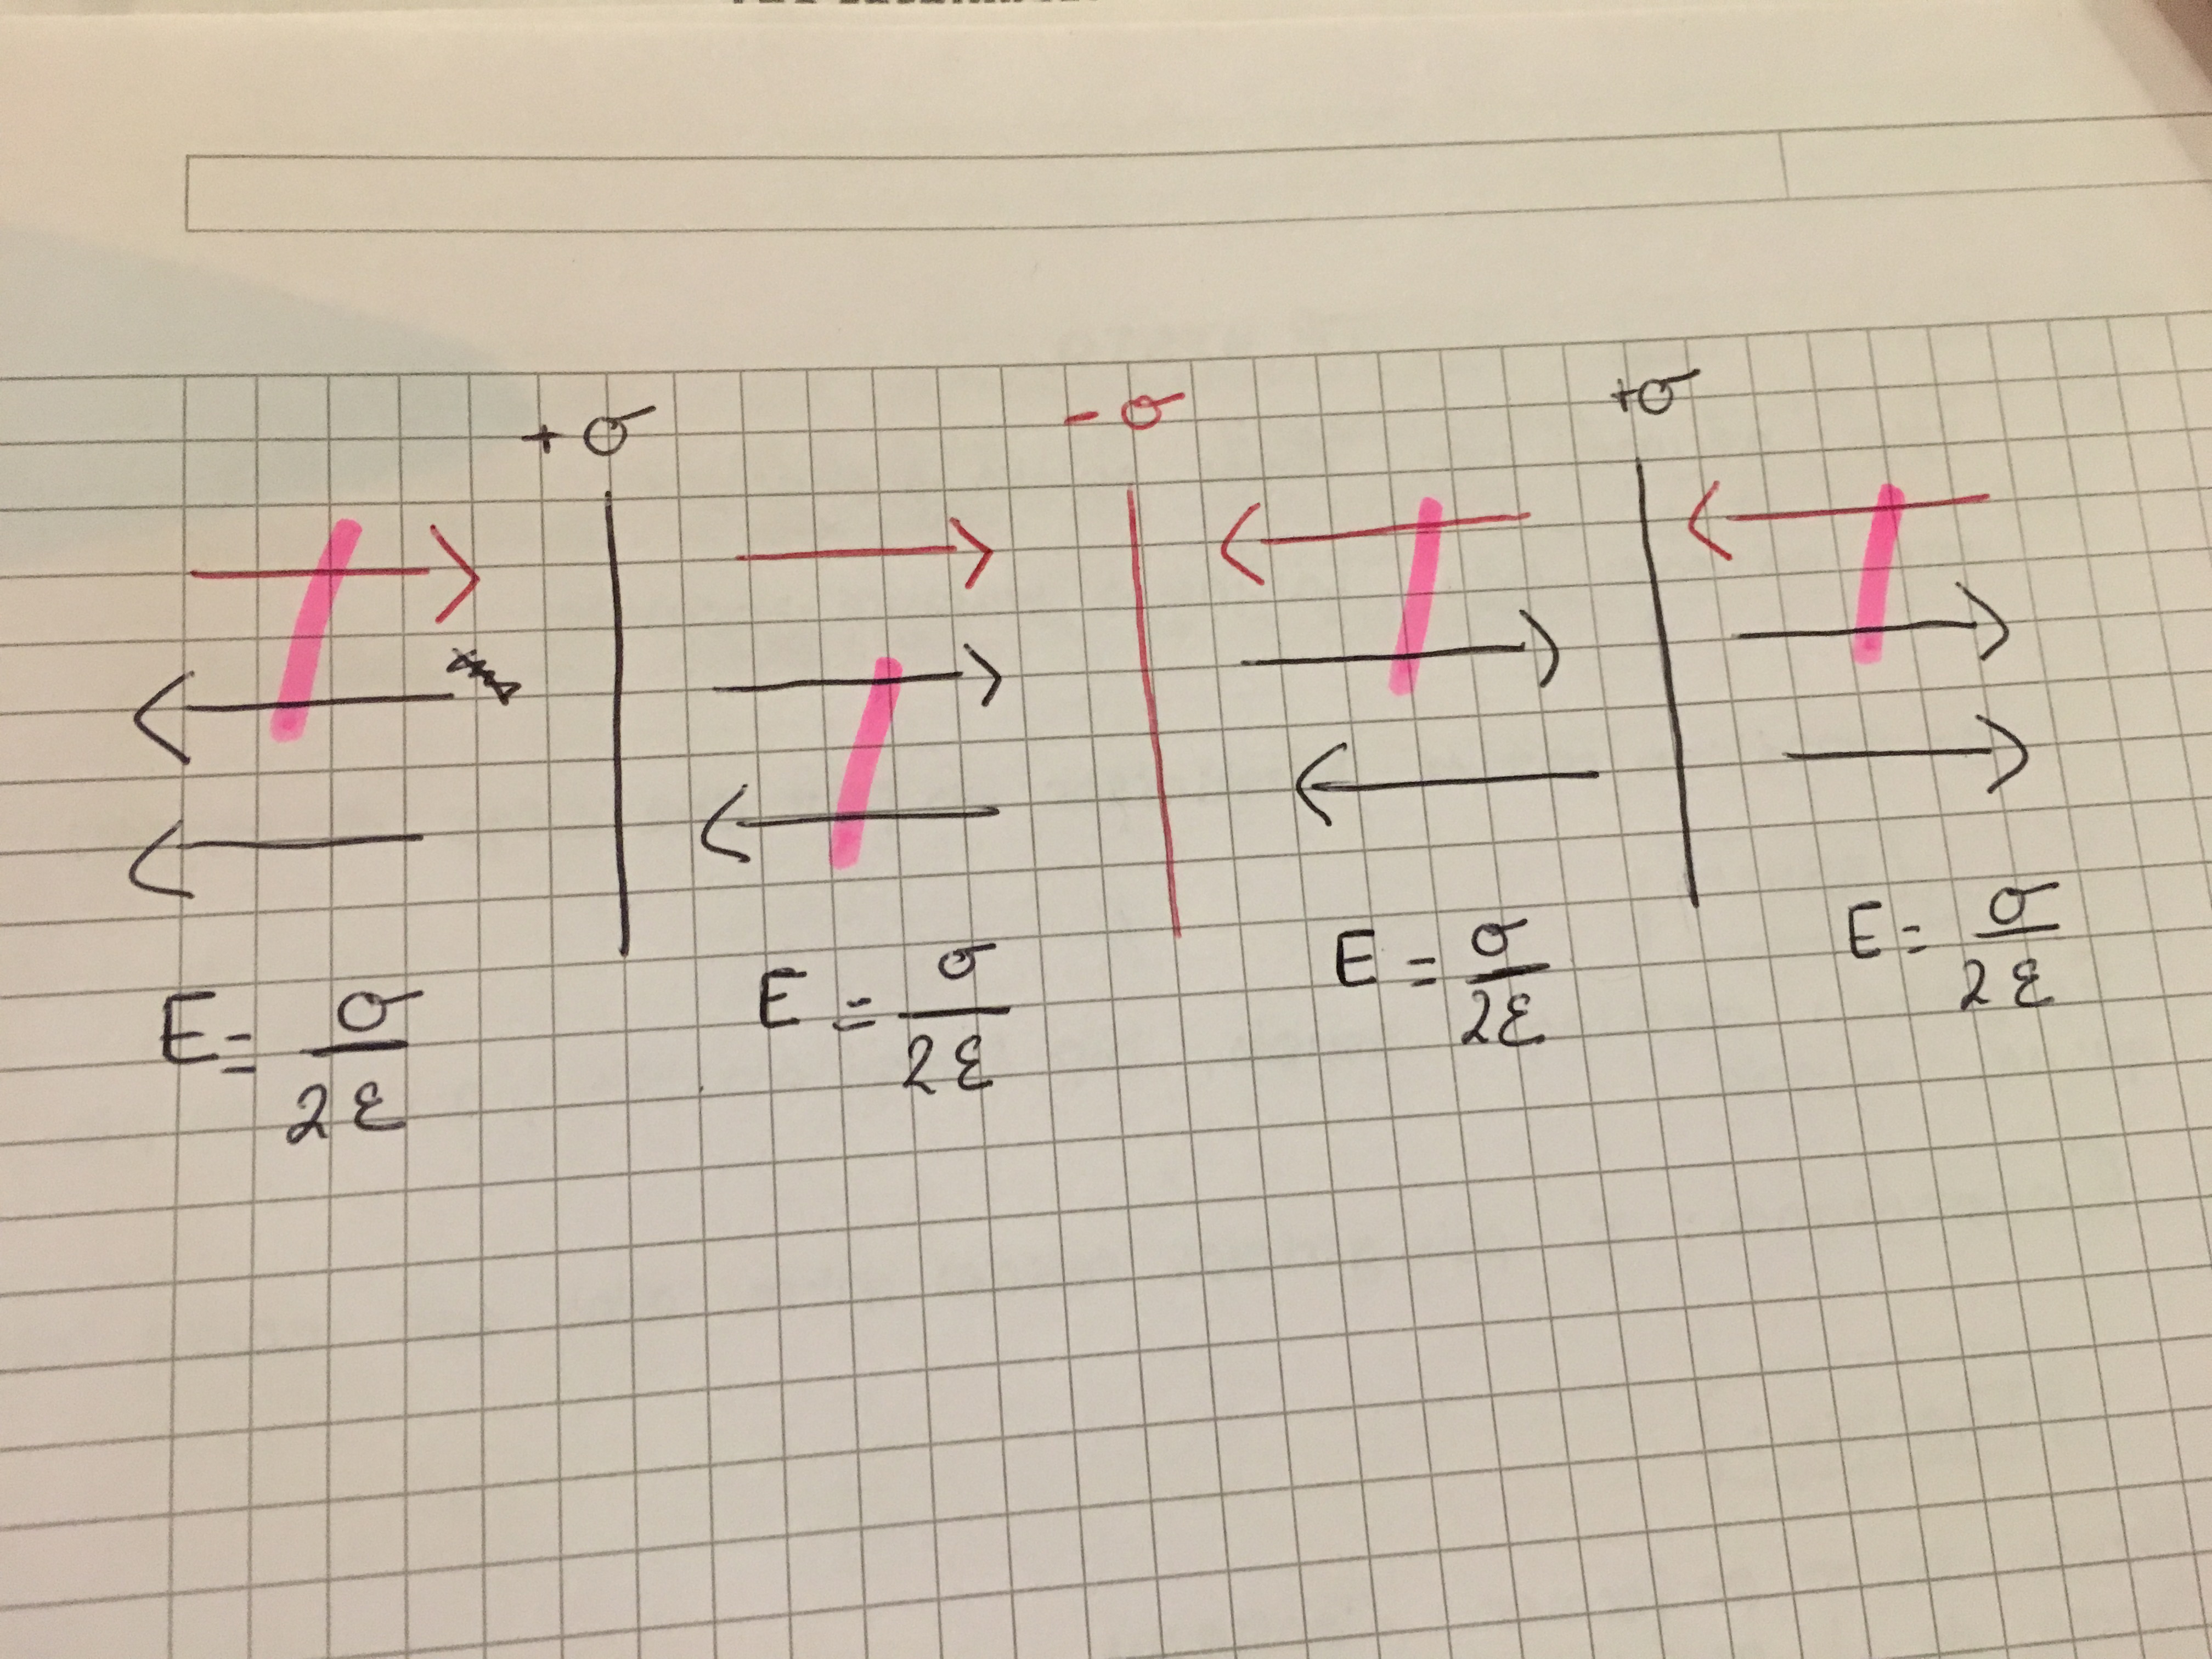 +σ
-σ
+σ
E = σ/2ε
E = σ/2ε
E = σ/2ε
E = σ/2ε